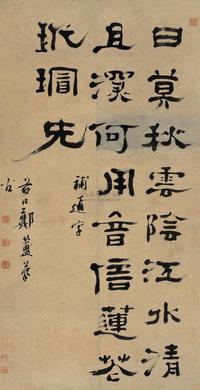 日莫秋雲陰江水清
且深何用音信蓮花
玳瑁兂
補通字
谷口鄭簠